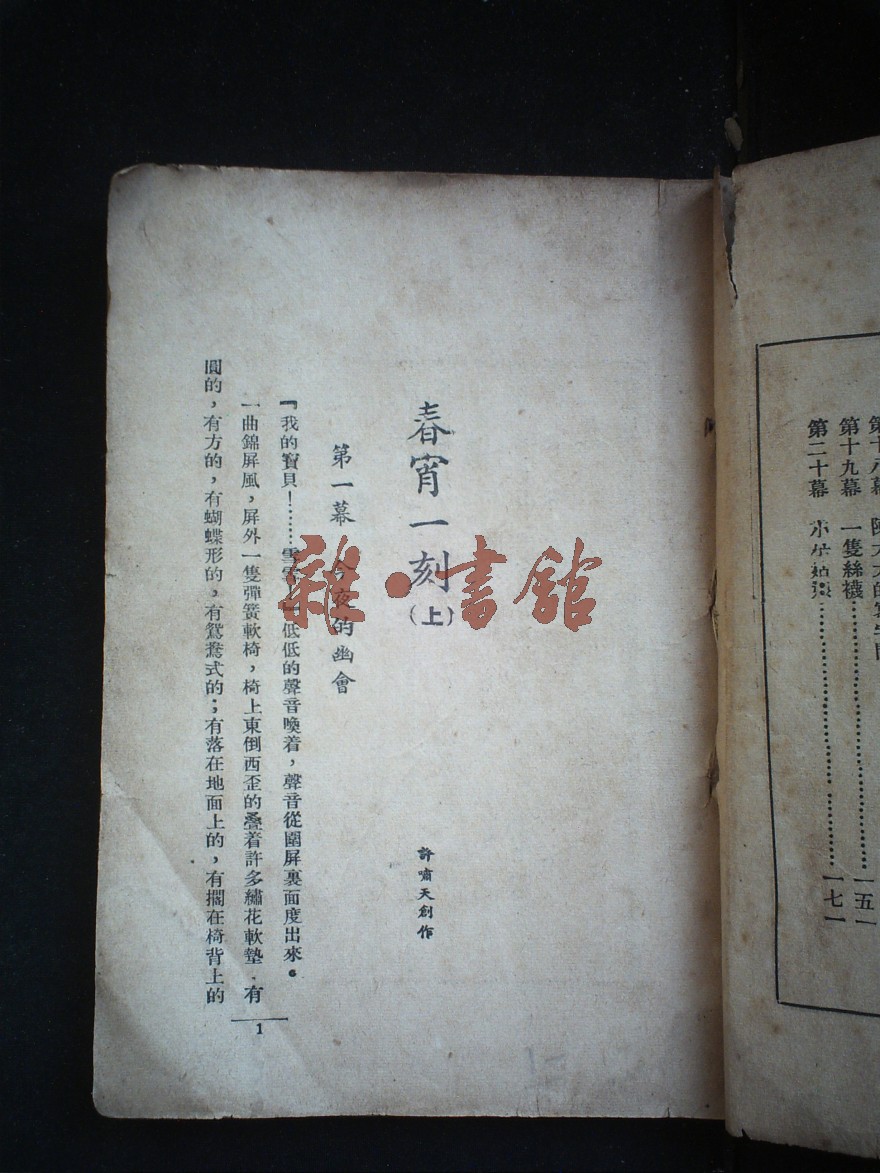 第十九幕 一隻絲襪……一五一
第二十幕……一七一
春宵一刻
(上)
許嘯天創作
第一幕 今夜的幽會
『我的寶貝!……低低的聲音喚着,聲音從圍屏裏面度出來。
一曲錦屏風,屏外一隻彈簧軟椅,椅上東倒西歪的疊着許多繡花軟墊.有
圓的,有方的,有蝴蝶形的,有鴛鴦式的;有落在地面上的,有擱在椅背上的
1
雜·書館